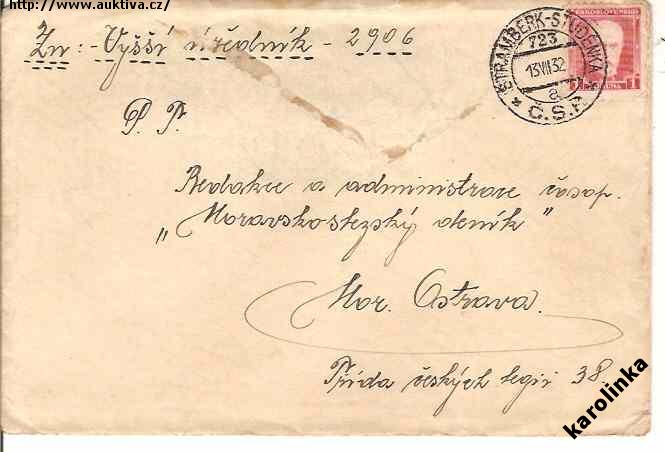 http://www.auktiva.cz/
Zn: - Vyšší úředník - 2906
ČESKOSLOVENSKO
ŠTRAMBERK-STUDÉNKA
723
13.VII.32
a
* Č.S.P. *
1
P. T.
Redakce a administrace časop.
„Moravskoslezský deník"
Mor. Ostrava.
Třída českých legií 38.
karolinka